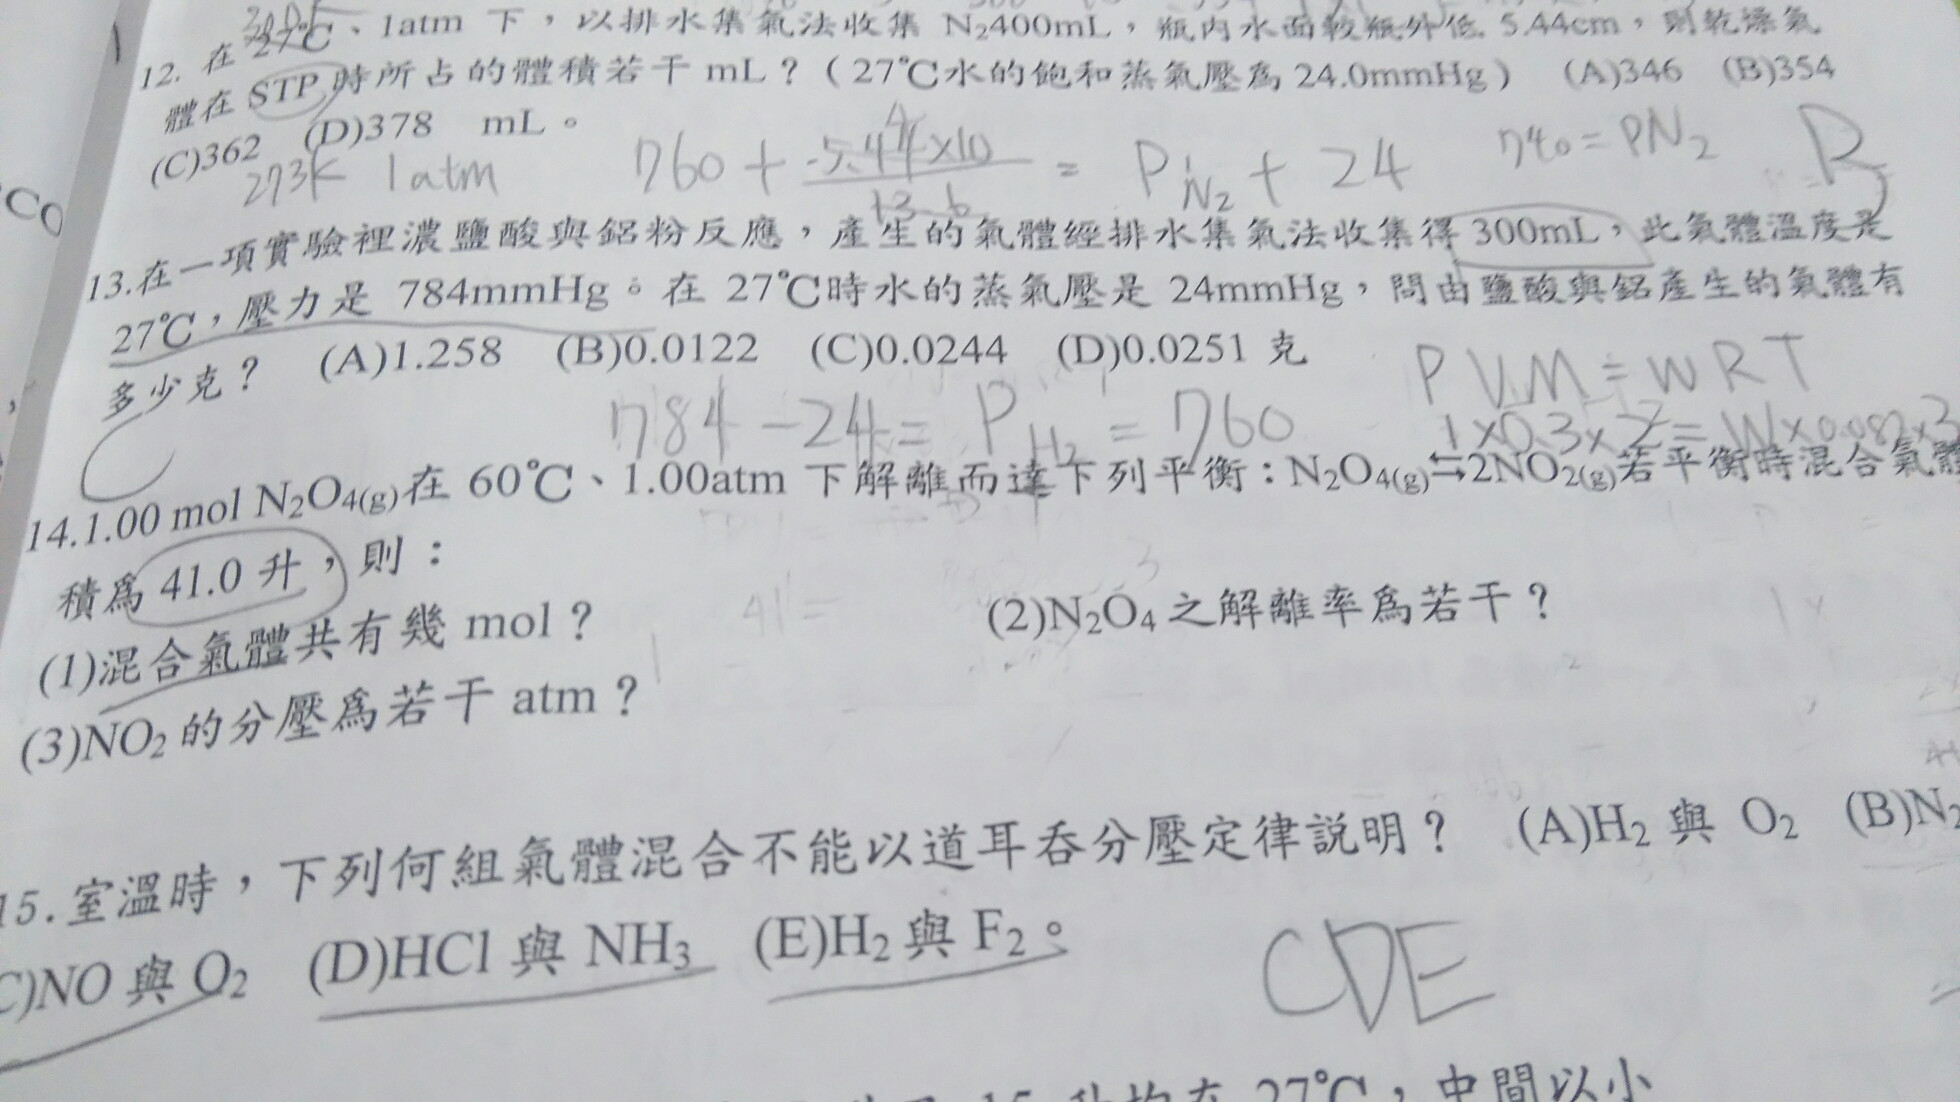 12. 在 27℃、1atm 下，以排水集氣法收集 N₂400mL，瓶內水面較瓶外低 5.44cm，則乾燥氣
體在 STP 時所占的體積若干 mL？（27℃水的飽和蒸氣壓為 24.0mmHg） (A)346 (B)354
(C)362 (D)378 mL。
273K 1atm
760 + 5.44×10/13.6 = P N₂ + 24
740 = PN₂
B
13.在一項實驗裡濃鹽酸與鋁粉反應，產生的氣體經排水集氣法收集得 300mL，此氣體溫度是
27℃，壓力是 784mmHg。在 27℃時水的蒸氣壓是 24mmHg，問由鹽酸與鋁產生的氣體有
多少克？ (A)1.258 (B)0.0122 (C)0.0244 (D)0.0251 克
C
784 - 24 = P H₂ = 760
PVM = WRT
1×0.3×2 = W×0.082×3
14.1.00 mol N₂O₄(g)在 60℃、1.00atm 下解離而達下列平衡：N₂O₄(g)⇆2NO₂(g)若平衡時混合氣體
積為 41.0 升，則：
(1)混合氣體共有幾 mol？ (2)N₂O₄之解離率為若干？
(3)NO₂的分壓為若干 atm？
15.室溫時，下列何組氣體混合不能以道耳吞分壓定律說明？ (A)H₂ 與 O₂ (B)N₂
C)NO 與 O₂ (D)HCl 與 NH₃ (E)H₂與 F₂。
CDE
27℃，中間以小